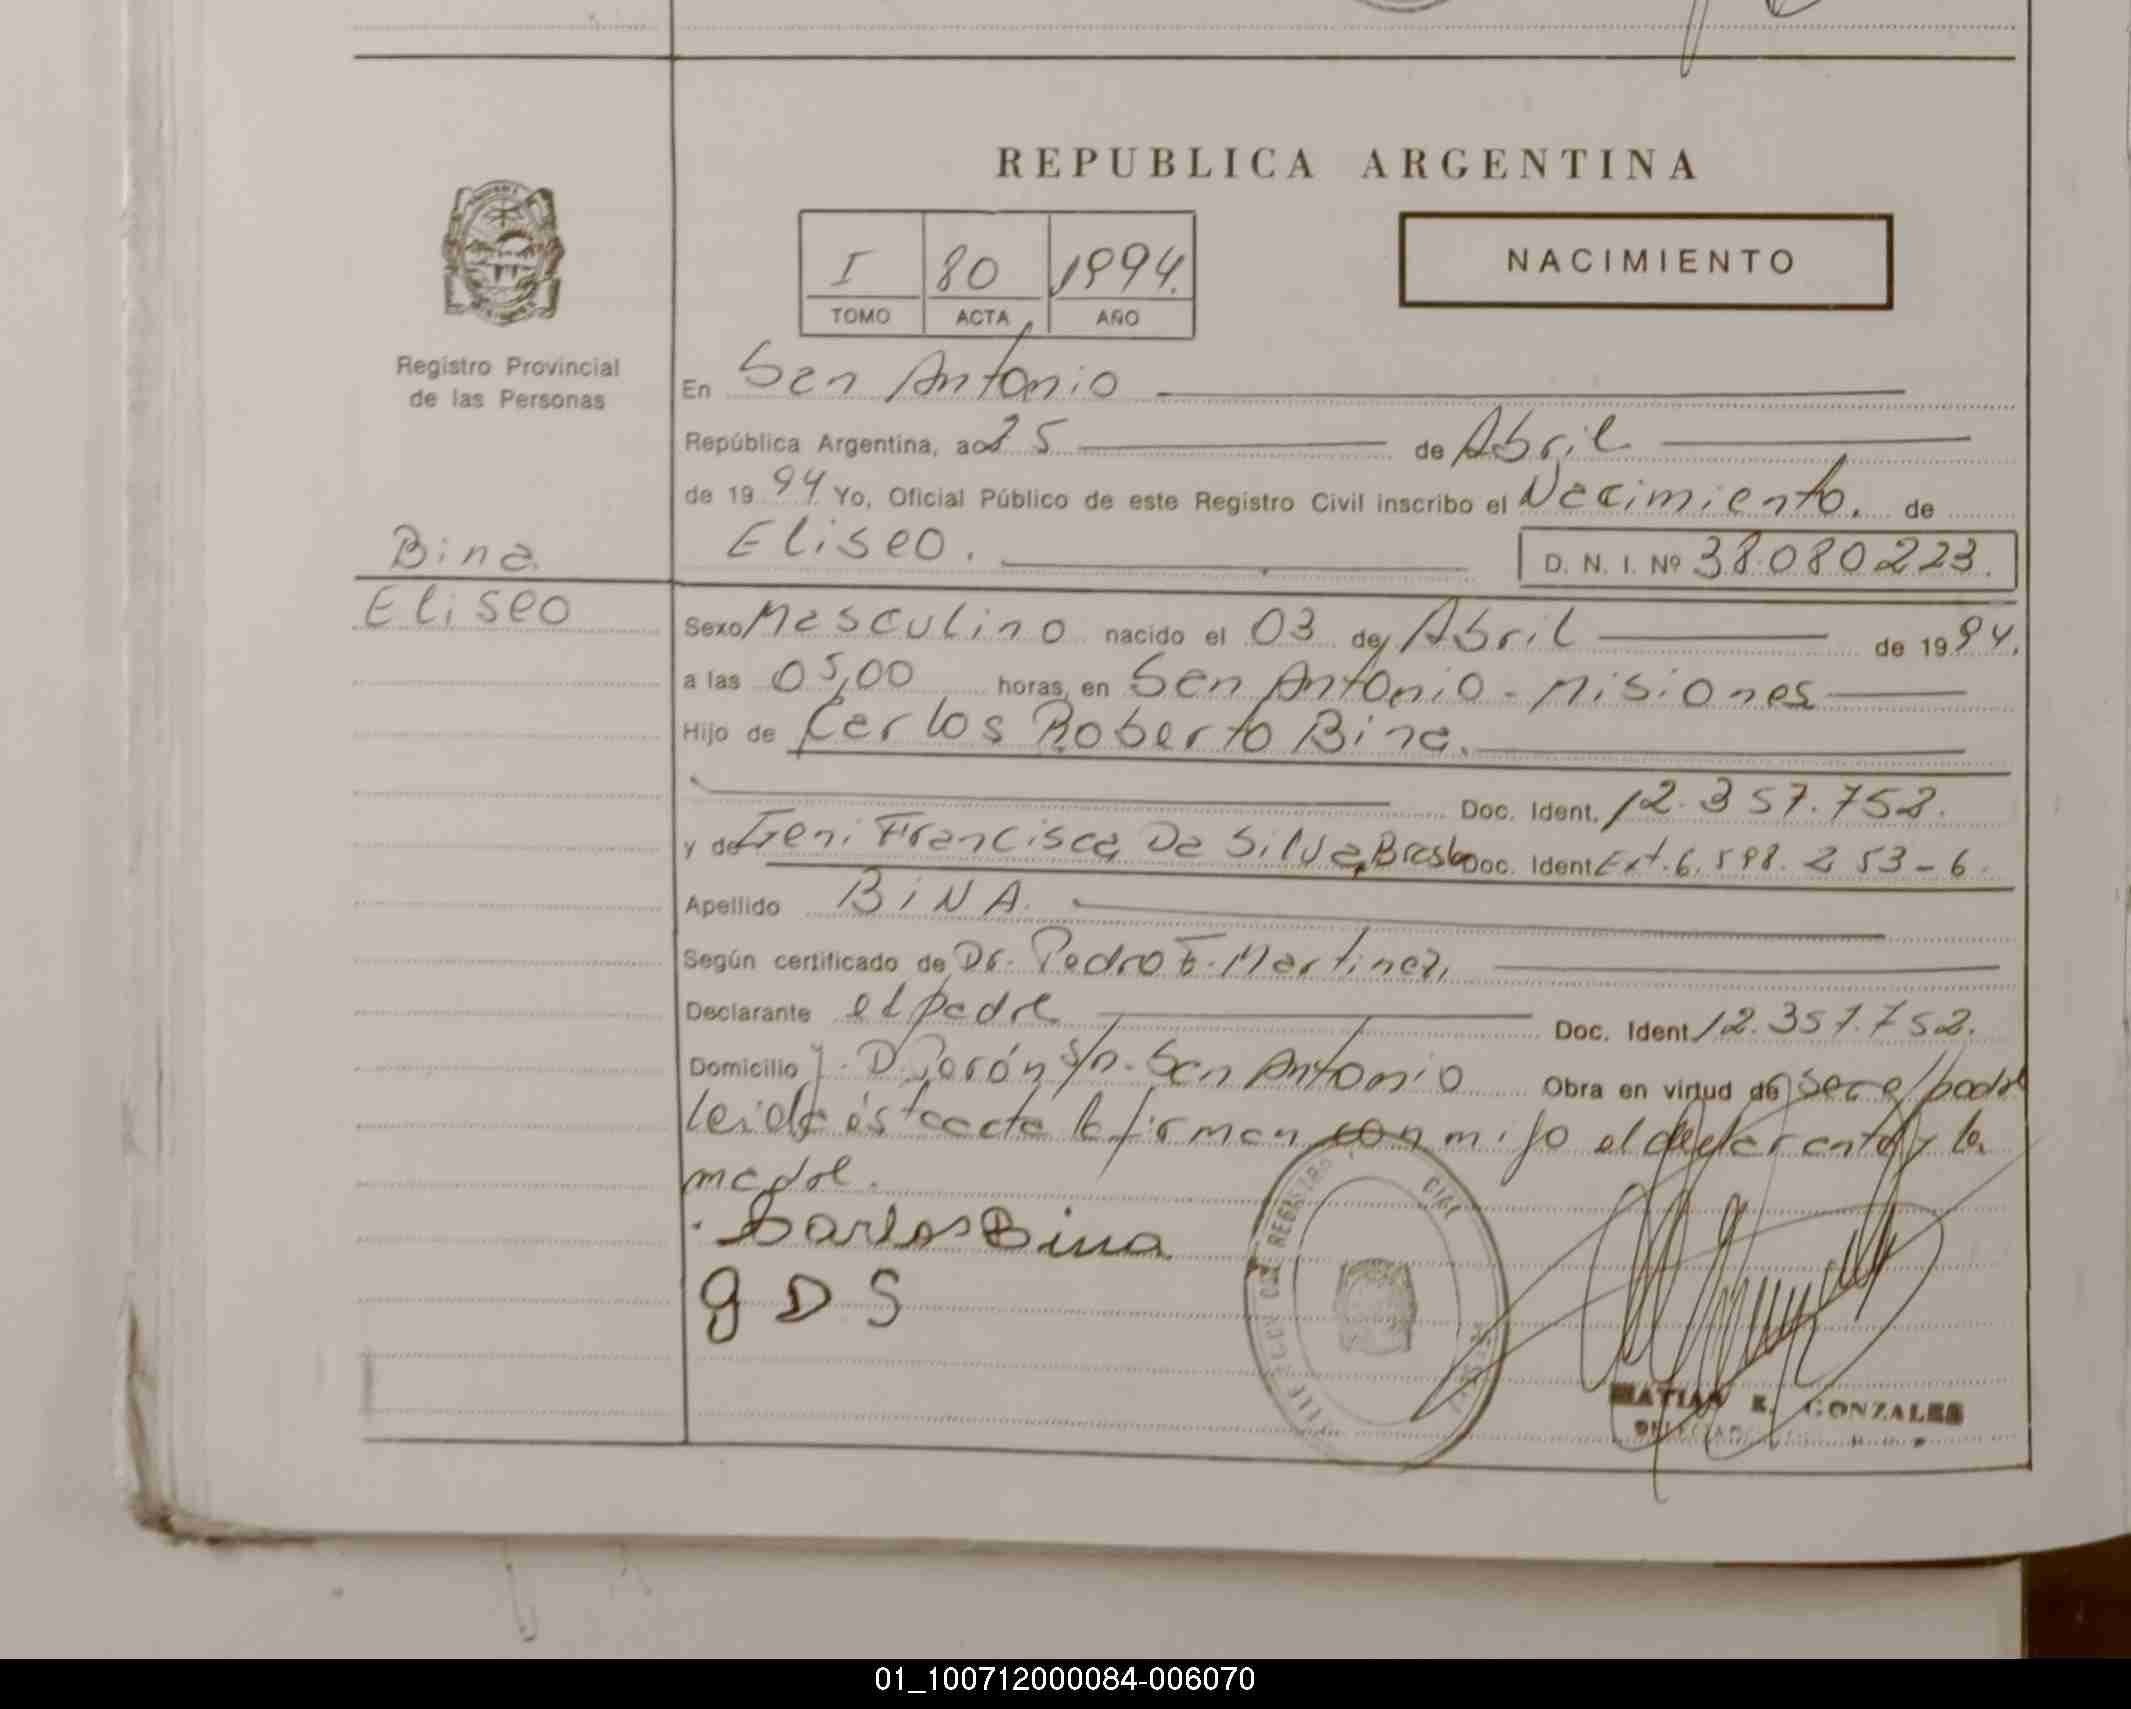 REPUBLICA ARGENTINA
I 80 1994.
TOMO ACTA AÑO
NACIMIENTO
Registro Provincial
de las Personas
En San Antonio
República Argentina, a 25 de Abril
de 1994 Yo, Oficial Público de este Registro Civil inscribo el Nacimiento. de
Bina Eliseo. D. N. I. Nº 38.080.223.
Eliseo
Sexo Masculino nacido el 03 de Abril de 1994.
a las 05,00 horas, en San Antonio - Misiones
Hijo de Carlos Roberto Bina.
Doc. Ident. 12.357.752.
y de Geni Francisca Da Silva, Doc. Ident. Ext. 6.598.253-6.
Apellido BINA.
Según certificado de Dr. Pedro E. Martinez,
Declarante el padre Doc. Ident. 12.357.752.
Domicilio J. D. Perón s/n. San Antonio Obra en virtud de ser el padre
leida ésta acta la firman con migo el declarante y la
madre.
Carlos Bina
g D S
REGISTRO CIVIL
E. GONZALES
01_100712000084-006070